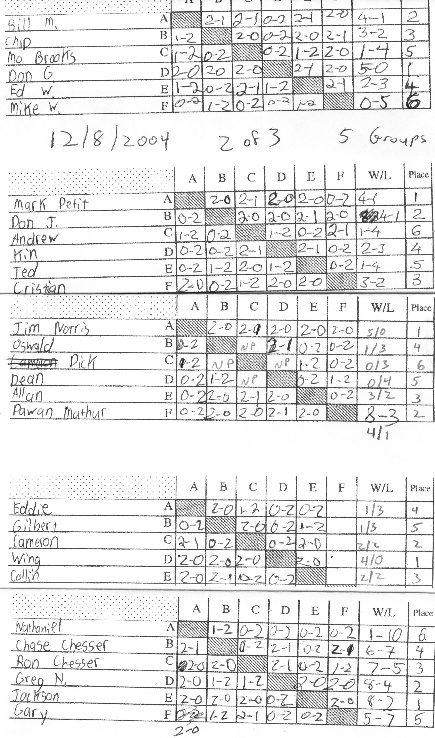 Bill M. A 2-1 2-1 0-2 2-1 2-0 4-1 2
Chip B 1-2 2-0 0-2 2-0 2-1 3-2 3
Mo Brooks C 1-2 0-2 0-2 1-2 2-0 1-4 5
Don G D 2-0 2-0 2-0 2-1 2-0 5-0 1
Ed W. E 1-2 0-2 2-1 1-2 2-1 2-3 4
Mike W. F 0-2 1-2 0-2 0-2 1-2 0-5 6
12/8/2004 2 of 3 5 Groups
A B C D E F W/L Place
Mark Petit A 2-0 2-1 2-0 2-0 0-2 4-1 1
Don J. B 0-2 2-0 2-0 2-1 2-0 4-1 2
Andrew C 1-2 0-2 1-2 0-2 2-1 1-4 6
Kin D 0-2 0-2 2-1 2-1 0-2 2-3 4
Ted E 0-2 1-2 2-0 1-2 0-2 1-4 5
Cristian F 2-0 0-2 1-2 2-0 2-0 3-2 3
A B C D E F W/L Place
Jim Norris A 2-0 2-0 2-0 2-0 2-0 5/0 1
Oswald B 0-2 NP 2-1 0-2 0-2 1/3 4
Dick C 0-2 NP NP 1-2 0-2 0/3 6
Dean D 0-2 1-2 NP 0-2 1-2 0/4 5
Allan E 0-2 2-0 2-1 2-0 0-2 3/2 3
Pawan Mathur F 0-2 2-0 2-0 2-1 2-0 2-3 2
4/1
A B C D E F W/L Place
Eddie A 2-0 1-2 0-2 0-2 1/3 4
Gilbert B 0-2 2-0 0-2 1-2 1/3 5
Cameron C 2-1 0-2 0-2 2-0 2/2 2
Wing D 2-0 2-0 2-0 2-0 4/0 1
Collin E 2-0 2-1 0-2 0-2 2/2 3
A B C D E F W/L Place
Nathaniel A 1-2 0-2 0-2 0-2 0-2 1-10 6
Chase Chesser B 2-1 0-2 2-1 0-2 2-1 6-7 4
Ron Chesser C 2-0 2-0 2-1 0-2 1-2 7-5 3
Greg N. D 2-0 1-2 1-2 2-0 2-0 8-4 2
Jackson E 2-0 2-0 2-0 0-2 2-0 8-2 1
Gary F 1-2 2-1 0-2 0-2 5-7 5
2-0